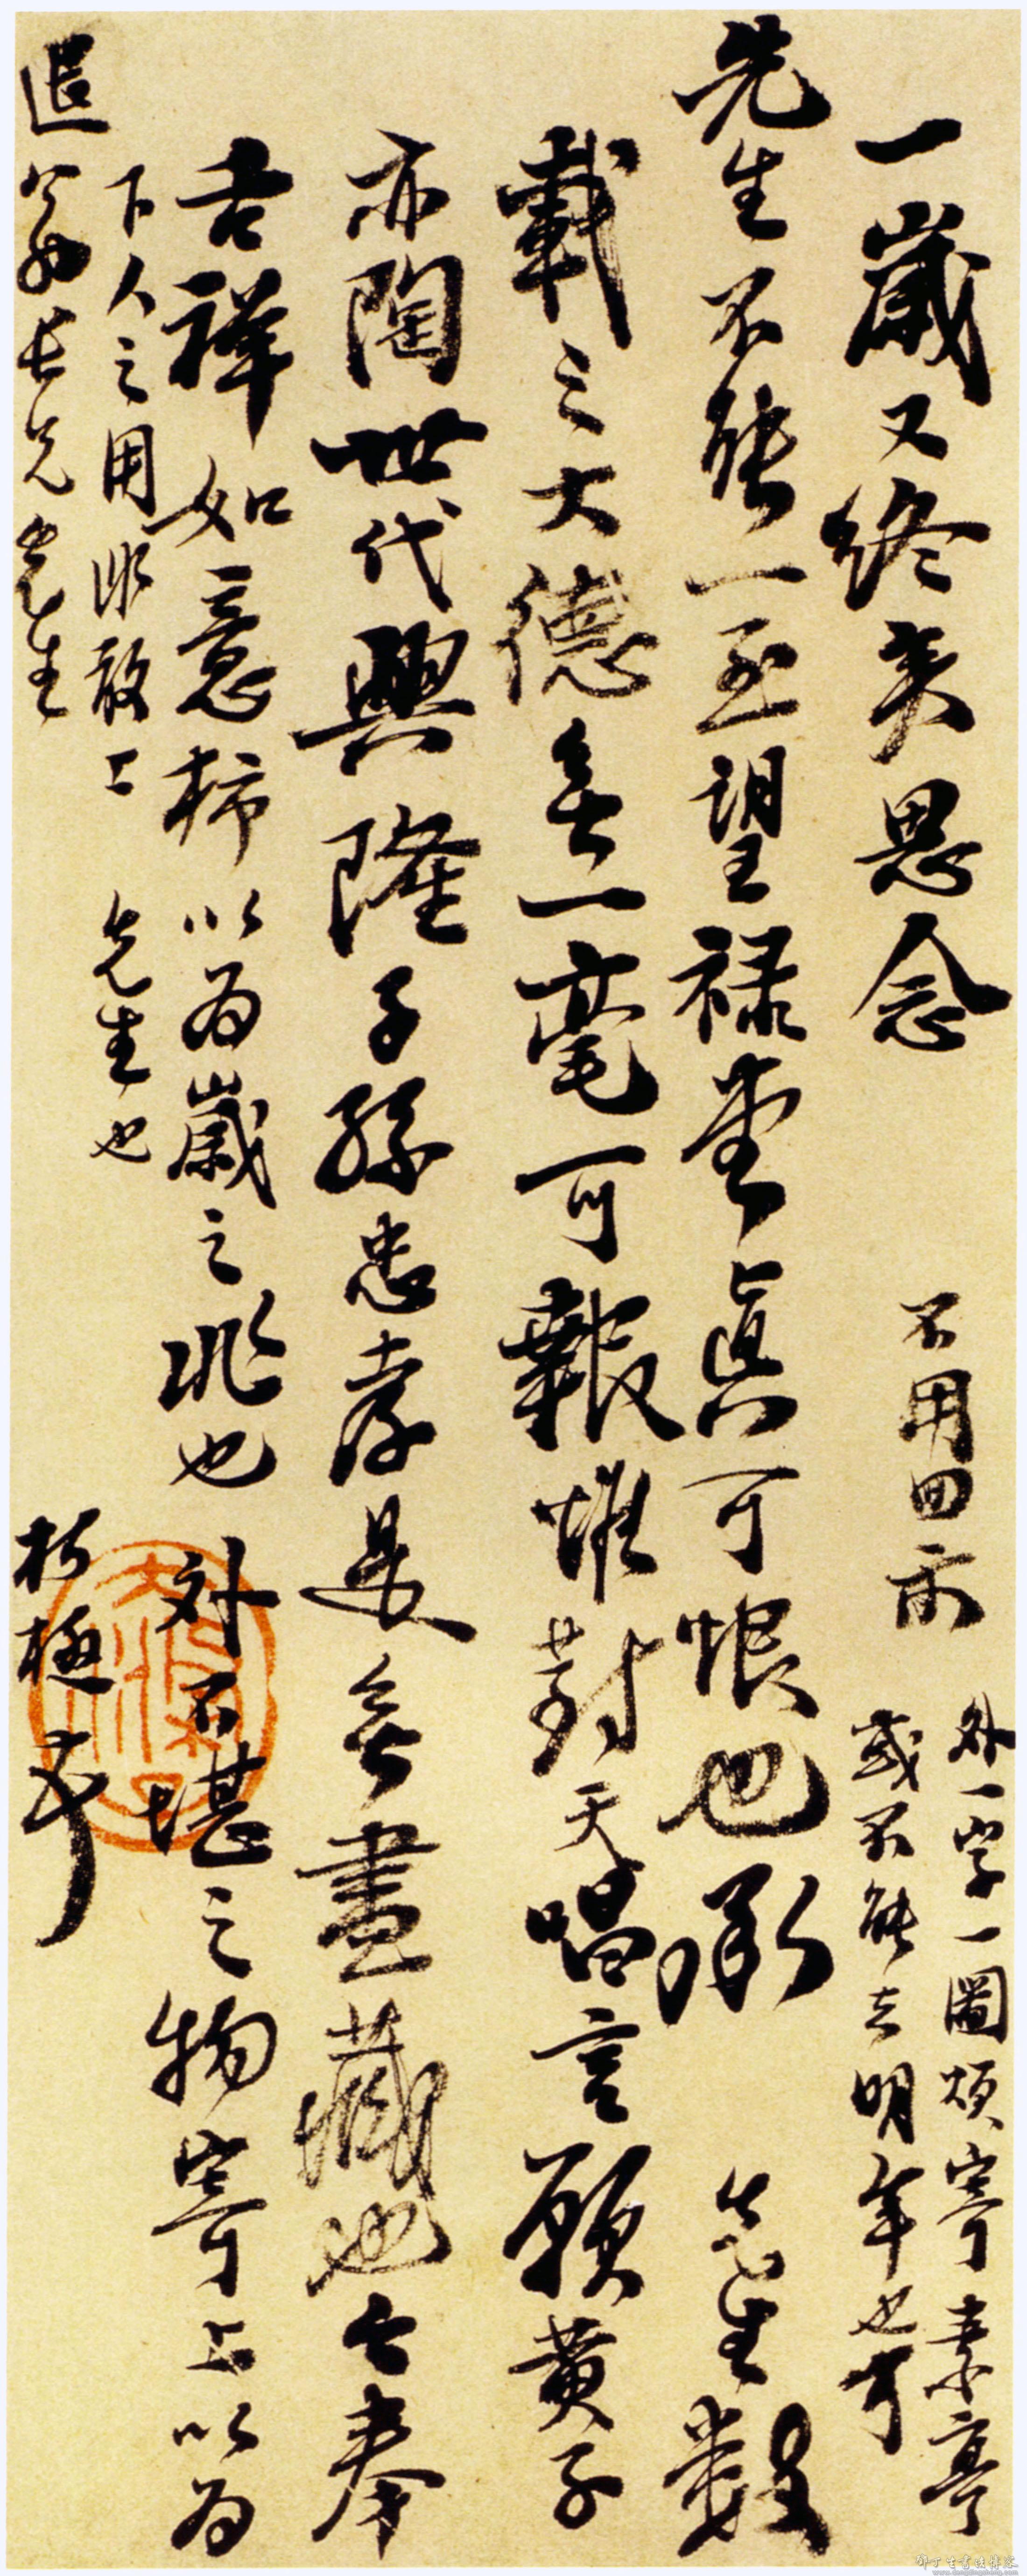 一歲又終矣思念
不用回示
外一字一圖煩寄素亭
或不能去明年也可
先生不能一至望祿堂真可恨也承
先生數
載之大德無一毫可報惟對天唱言願黃子
亦陶世代興隆子孫忠孝是無盡藏也今奉
吉祥如意柿以為歲之兆也外不堪之物寄上以為
下人之用非敢上
先生也
退翁長兄先生
朽極